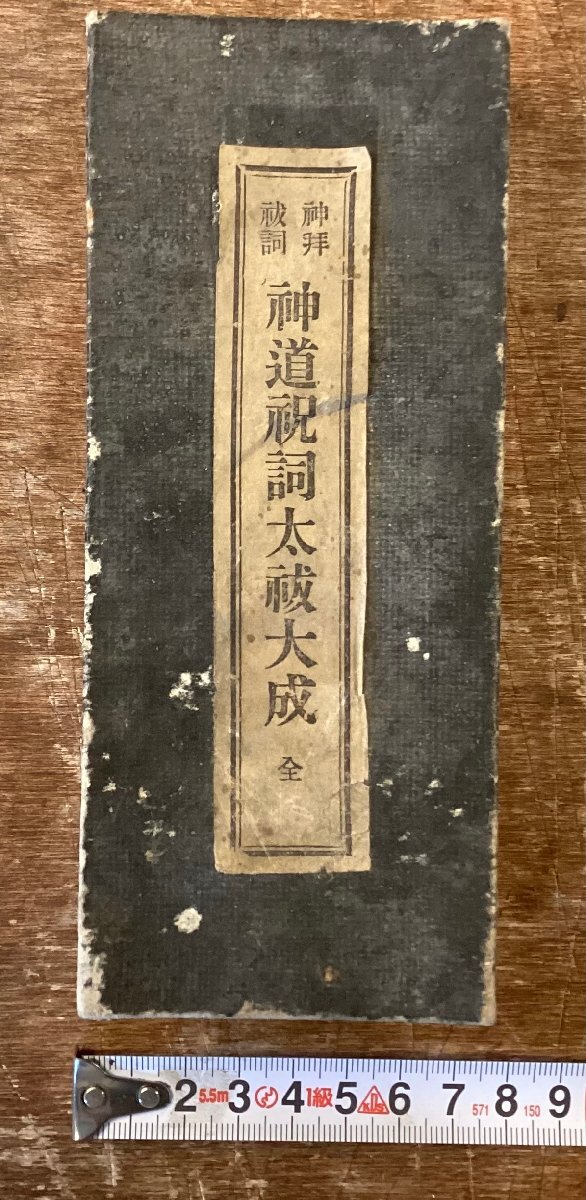 神拜
祓詞
神道祝詞太祓大成
全
2 5.5m 3 4 1級 5 KDS 6 7 571 8 150 9